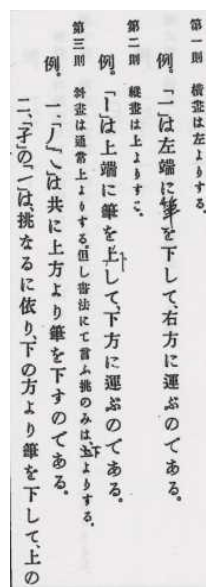 第一則 横畫は左よりする。
例。「一」は左端に筆を下して、右方に運ぶのである。
第二則 縦畫は上よりすこ。
例。「丨」は上端に筆を上して、下方に運ぶのである。
第三則 斜畫は通常上よりする。但し書法にて言ふ挑のみは、下よりする。
例。一、「丿」「乀」は共に上方より筆を下すのである。
二、「子」の「㇀」は、挑なるに依り、下の方より筆を下して、上の